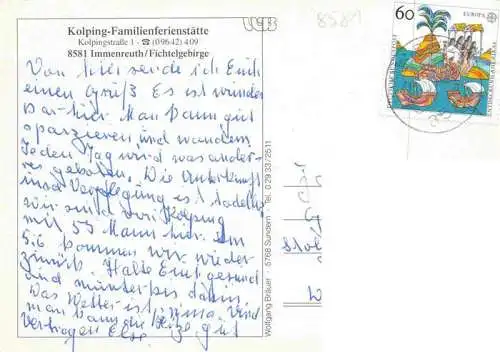 8584
Kolping-Familienferienstätte
Kolpingstraße 1 - ☎ (09642) 409
8581 Immenreuth/Fichtelgebirge
Von hier sende ich Euch
einen Gruß Es ist wunder
bar hier. Man kann gut
spazieren und wandern
Jeden Tag wird was ande-
res geboten. Die Unterkunft
und Verpflegung ist tadellos
wir sind von Kolping
mit 53 Mann hier. Am
5.6 kommen wir wieder
zurück. Haltet Euch gesund
und munter bis dahin.
Das Wetter ist prima. Und
man kann die Hitze gut
Vertragen Else.
Wolfgang Bräuer - 5768 Sundern - Tel. 0 29 33/25 11
60
EUROPA